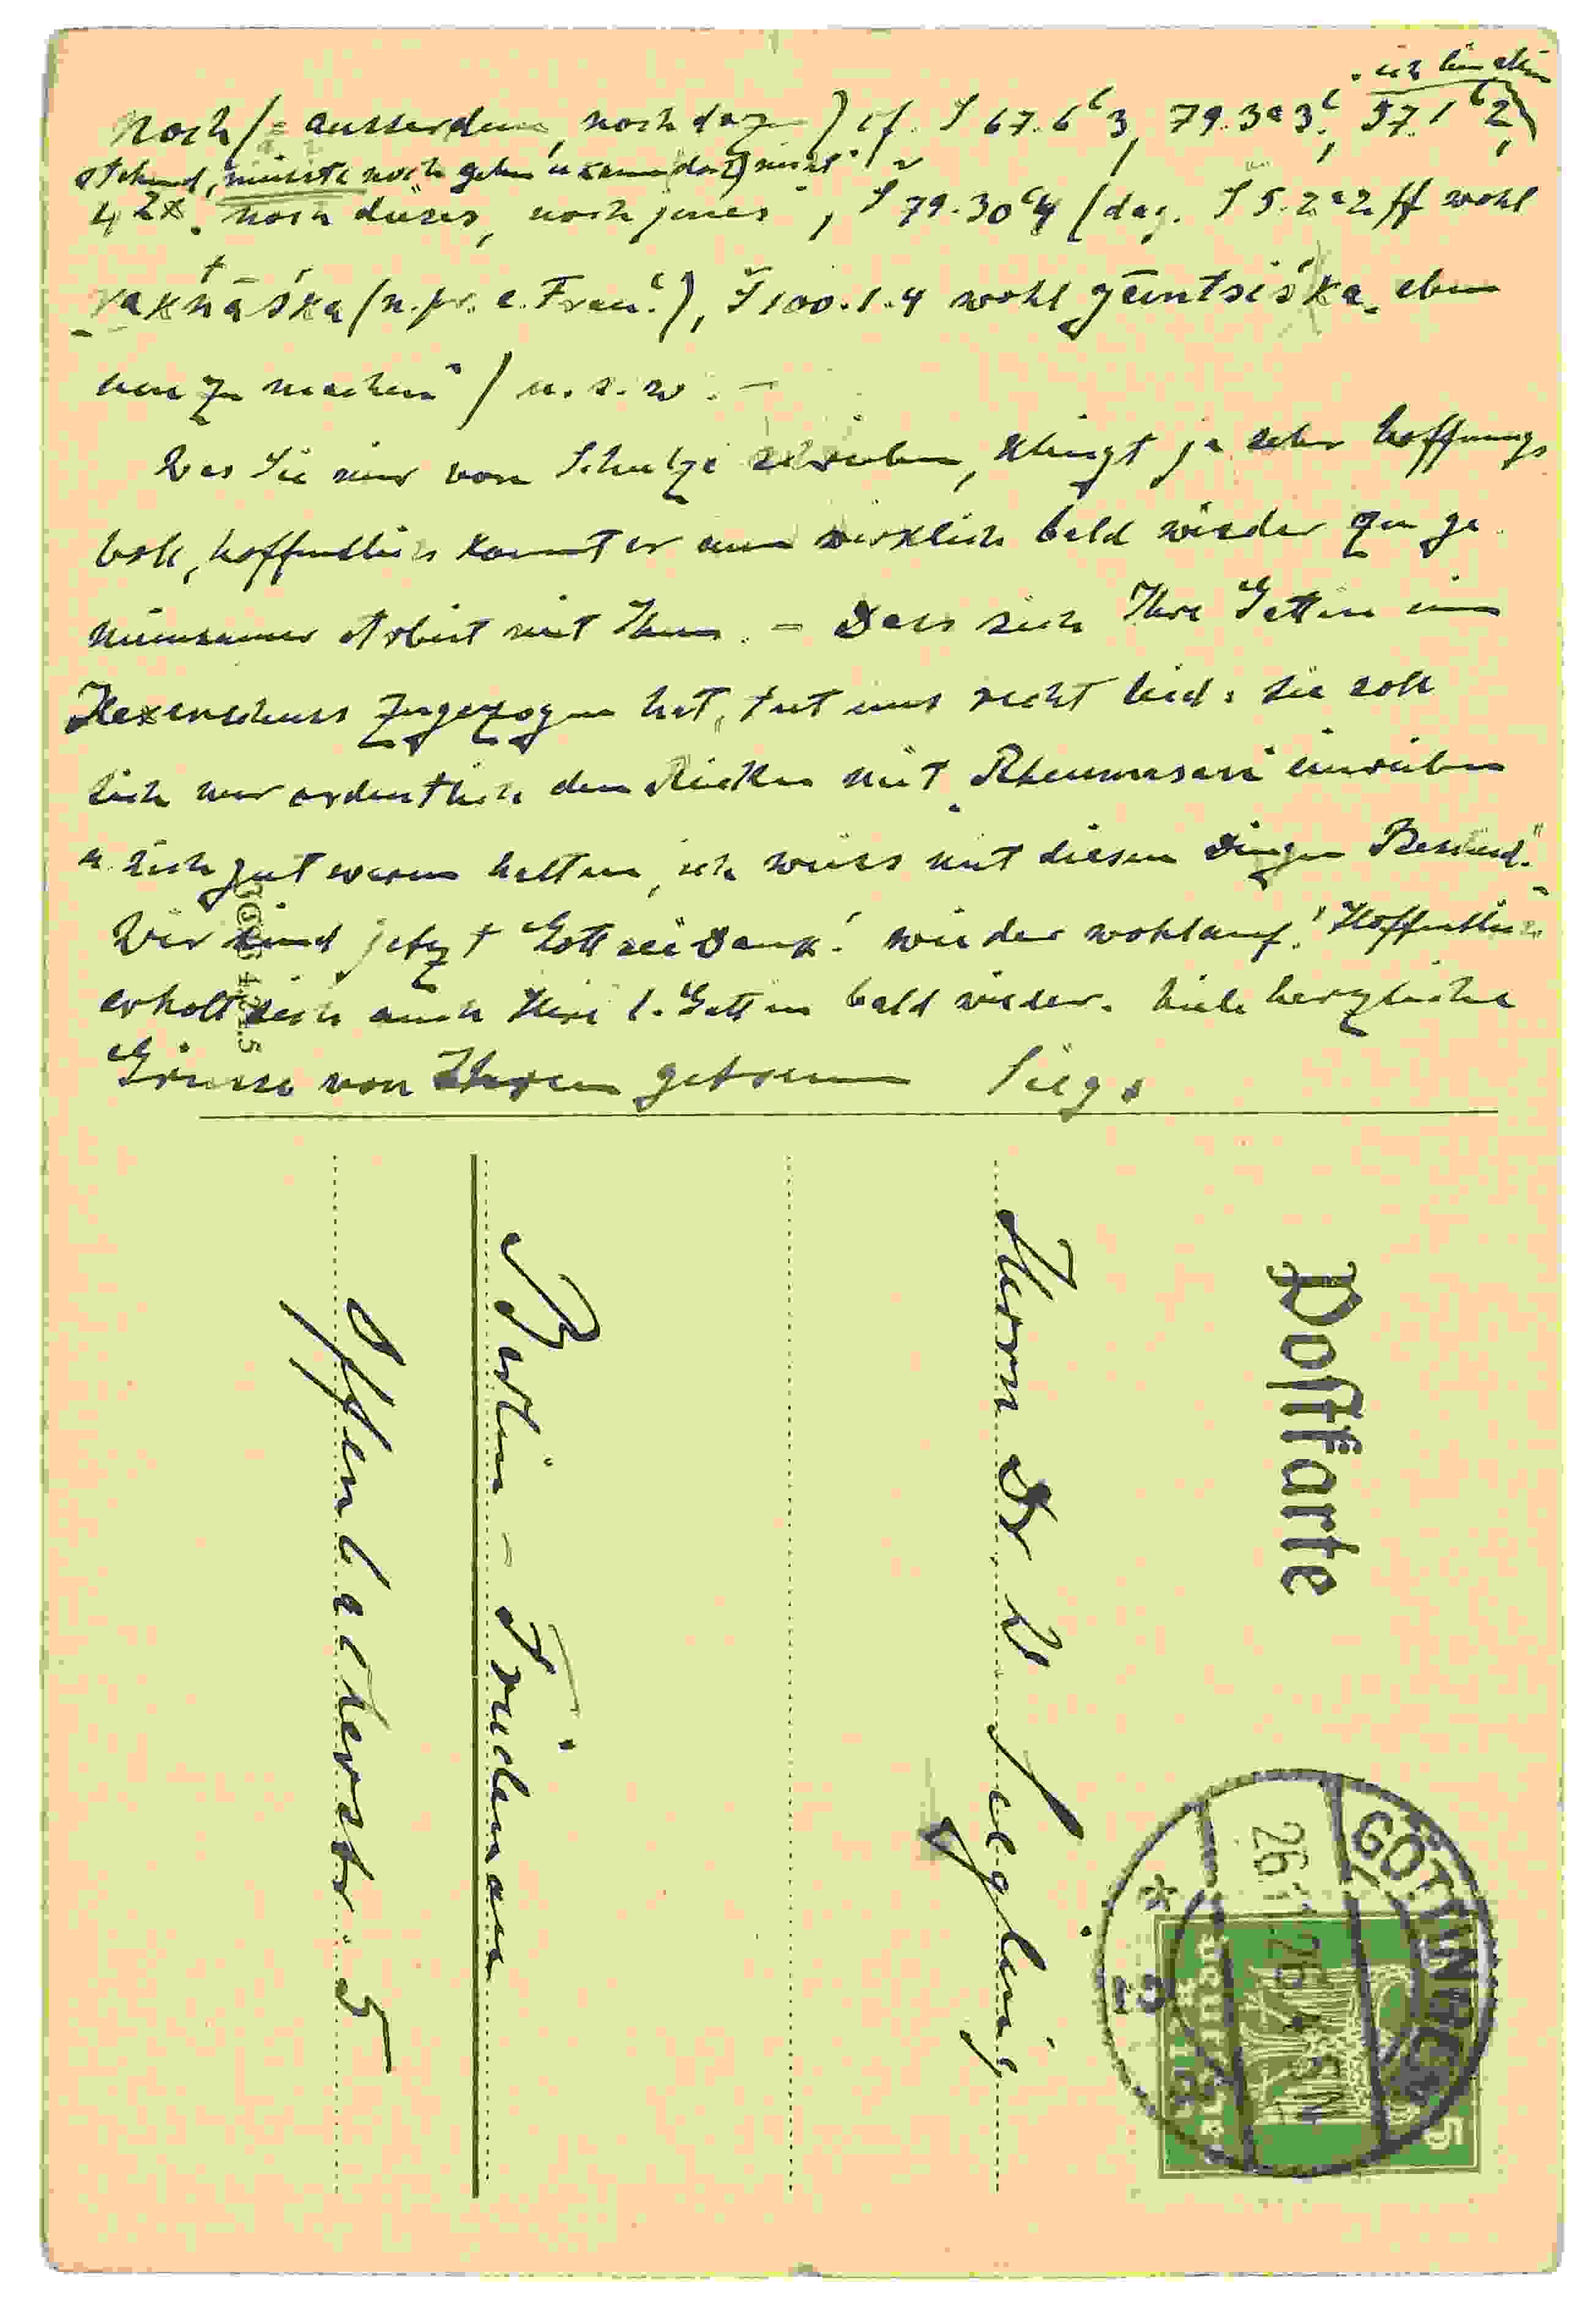 „ich bin eben
noch (= ausserdem, noch dazu) cf. S 67.6b3, 79.3a3, 97.1b2,
stehend, müsste noch gehen u. kann das nicht“
4 2x „noch dieses, noch jenes“, S 79.30b4 (dag. S 5.2a2 ff wohl
yaknāśka (n. pr. e. Frau?), Š 100.1.4 wohl eben
zu machen“) u. s. w. –
Was Sie mir von Schulze schrieben, klingt ja sehr hoffnungs
voll, hoffentlich kommt er nun wirklich bald wieder zu ge
meinsamer Arbeit mit Ihnen. – Dass sich Ihre Gattin einen
Hexenschuss zugezogen hat, tut uns recht leid: sie soll
sich nur ordentlich den Rücken mit „Rheumasan“ einreiben
u. sich gut warm halten, ich weiss mit diesen Dingen Bescheid.
Wir sind jetzt Gott sei Dank! wieder wohlauf! Hoffentlich
erholt sich auch Ihre l. Gattin bald wieder. Viele herzliche
Grüsse von Ihrem getreuen Sieg.
Postkarte
Herrn Dr W Siegling
Berlin - Friedenau
Offenbacherstr. 5
GÖTTINGEN
26.11.26
5